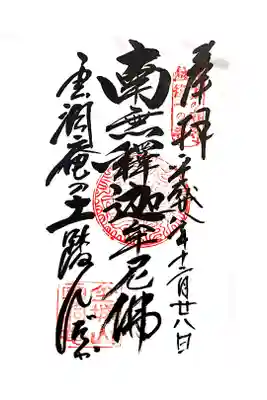 奉拝 平成八年十二月廿八日
南無釋迦牟尼佛
雲洞庵の土踏んだか